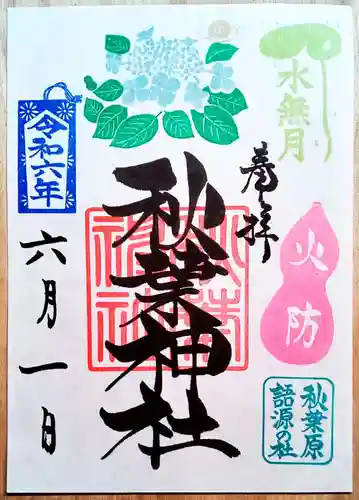 水無月
奉拝
火防
秋葉原
語源の社
秋葉神社
令和六年
六月一日